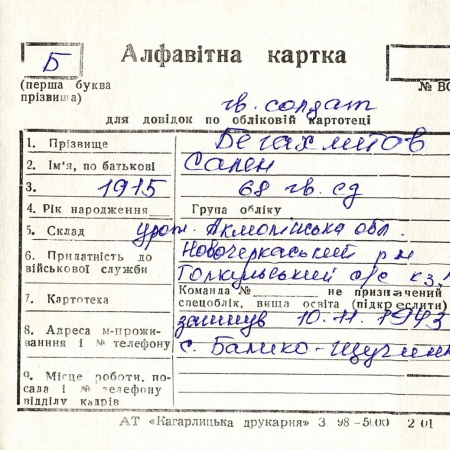 Б
Алфавітна картка
(перша буква
прізвища)
№ ВО
гв. солдат
для довідок по обліковій картотеці
1. Прізвище Бегахметов
2. Ім'я, по батькові Сален
3. 1915 68 гв. сд
4. Рік народження Група обліку
5. Склад урож. Акмолінська обл.
Новочеркаський р-н
6. Придатність до
військової служби
с/с кз.
Команда № не призначений
7. Картотека
спецоблік, вища освіта (підкреслити)
загинув 10.11.1943
8. Адреса м-прожи-
вання і № телефону
с. Балико-Щучин
9. Місце роботи, по-
сада і № телефону
відділу кадрів
АТ «Кагарлицька друкарня» З. 98-5000 2 01